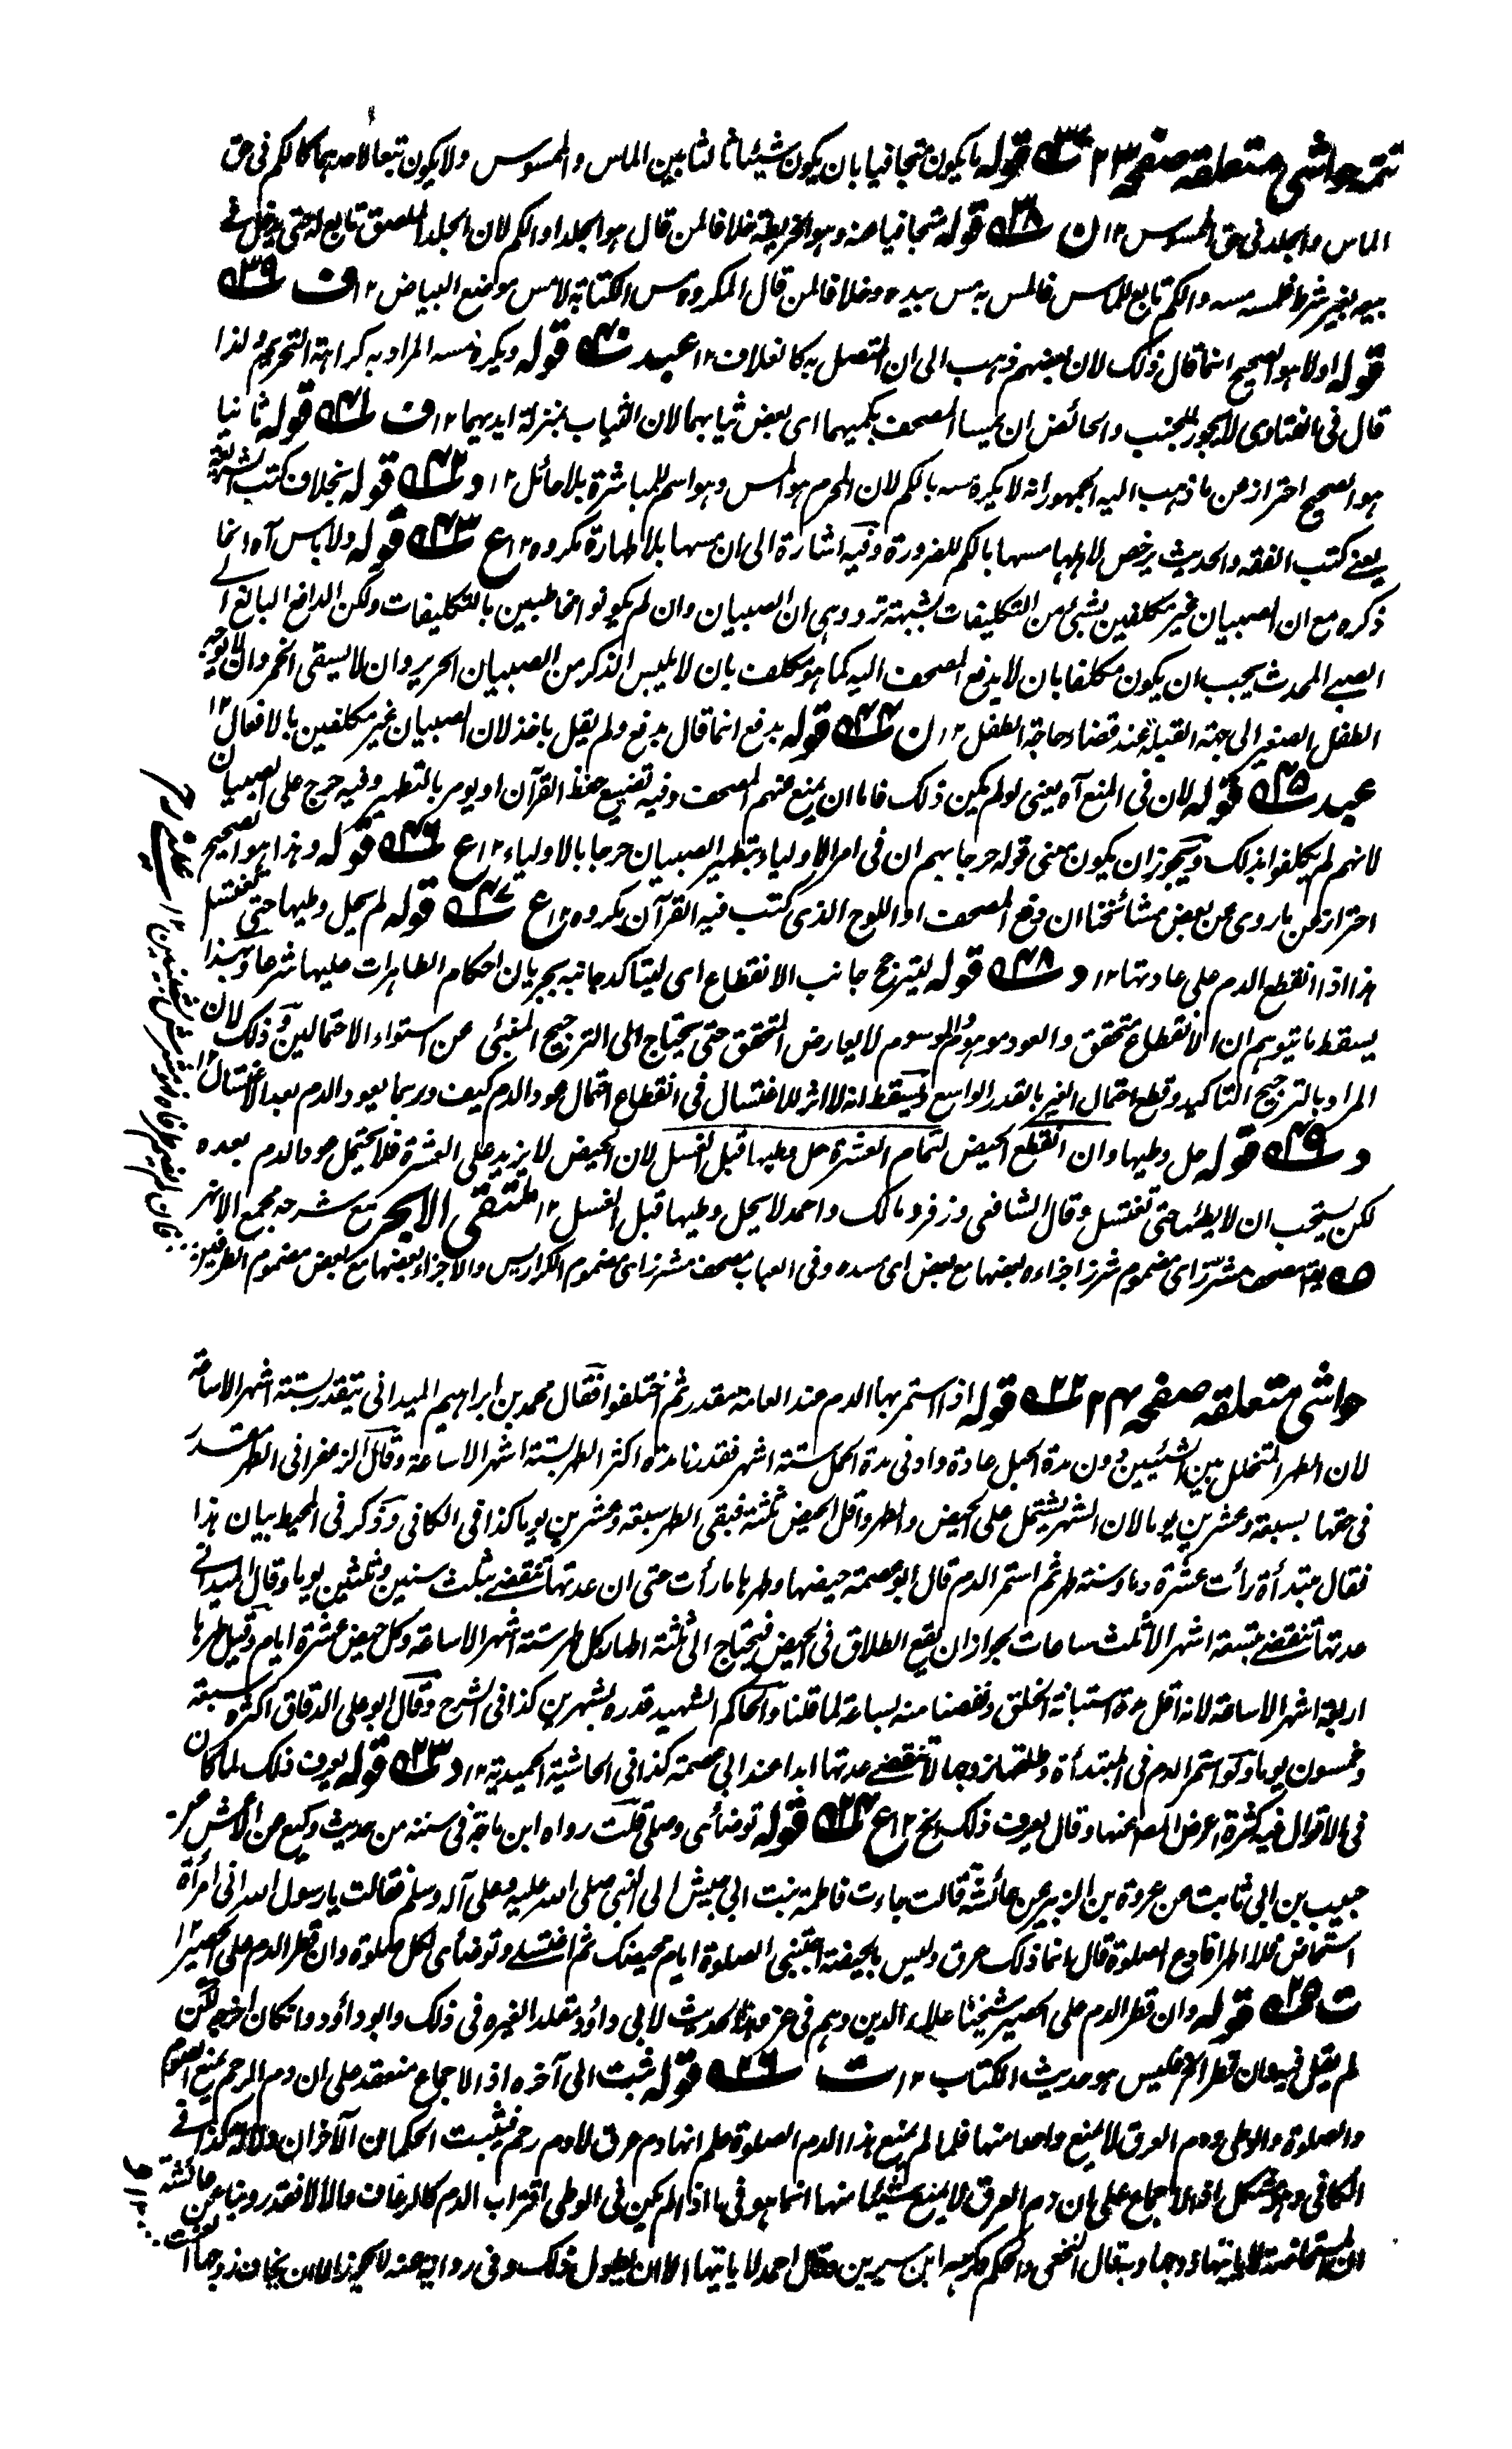 تتمة حواشی متعلقہ صفحہ ۲۳ ۳۷ قوله ما يكون متجافيا بان يكون شيئا ثالثا بين الماس والممسوس ولا يكون تبعا لاحدهما كالكم فی حق
الماس والجلد فی حق الممسوس ۱۲ ن ۳۸ قوله متجافيا عنه وهو الخريطة خلافا لمن قال هو الجلد او الكم لان الجلد الملصق تابع له حتى يدخل فی
بيعه بغير شرط فمسه مسه والكم تابع للماس فالمس به مس بيده وخلافا لمن قال المكروه مس الكتابة لا مس موضع البياض ۱۲ ف ۳۹
قوله اولا هو الصحيح انما قال ذلك لان بعضهم ذهب الى ان المتصل به كالغلاف ۱۲ عبد ۴۰ قوله ويكره مسه المراد به كراهة التحريم ولذا
قال فی الفتاوى لا يجوز للجنب والحائض ان يمسا المصحف بكميهما ای بعض ثيابهما لان الثياب بمنزلة ايديهما ۱۲ ف ۴۱ قوله ثانيا
هو الصحيح احتراز عن ما ذهب اليه الجمهور انه لا يكره مسه بالكم لان المحرم هو المس وهو اسم للمباشرة بلا حائل ۱۲ د ۴۲ قوله بخلاف كتب الشريعة
يعنی كتب الفقه والحديث يرخص لاهلها مسها بالكم للضرورة وفيه اشارة الى ان مسها بلا طهارة مكروه ۱۲ ع ۴۳ قوله ولا باس آه انما
ذكره مع ان الصبيان غير مكلفين بشئ من التكليفات لشبهة ترد وهی ان الصبيان وان لم يكونوا مخاطبين بالتكليفات ولكن الدافع البالغ الى
الصبی المحدث يجب ان يكون مكلفا بان لا يدفع المصحف اليه كما هو مكلف بان لا يلبس الذكر من الصبيان الحرير وان لا يسقى الخمر وان لا يوجه
الطفل الصغير الى جهة القبلة عند قضاء حاجة الطفل ۱۲ ن ۴۴ قوله بدفع انما قال بدفع ولم يقل باخذ لان الصبيان غير مكلفين بالافعال ۱۲
عبد ۴۵ قوله لان فی المنع آه يعنی لو لم يكن ذلك فاما ان يمنع منهم المصحف وفيه تضييع حفظ القرآن او يؤمر بالتطهير وفيه حرج على الصبيان
لانهم لم يكلفوا بذلك ويجوز ان يكون معنى قوله حرجا بهم ان فی امر الاولياء بتطهير الصبيان حرجا بالاولياء ۱۲ ع ۴۶ قوله وهذا هو الصحيح
احتراز عن ما روى عن بعض مشائخنا ان دفع المصحف او اللوح الذی كتب فيه القرآن مكروه ۱۲ ع ۴۷ قوله لم يحل وطيها حتى تغتسل
هذا اذا انقطع الدم على عادتها ۱۲ د ۴۸ قوله ليترجح جانب الانقطاع ای ليتاكد جانبه بجريان احكام الطاهرات عليها شرعا وبهذا
يسقط ما يتوهم ان الانقطاع متحقق والعود موهوم والموهوم لا يعارض المتحقق حتى يحتاج الى الترجيح المنبئ عن استواء الاحتمالين وذلك لان
المراد بالترجيح التاكيد وقطع احتمال الغير بالقدر الواسع ويسقط انه لا اثر للاغتسال فی انقطاع احتمال عود الدم كيف وربما يعود الدم بعد الاغتسال ۱۲
د ۴۹ قوله حل وطيها وان انقطع الحيض لتمام العشرة حل وطيها قبل الغسل لان الحيض لا يزيد على العشرة فلا يحتمل عود الدم بعده
لكن يستحب ان لا يطئها حتى تغتسل وقال الشافعی وزفر ومالك واحمد لا يحل وطيها قبل الغسل ۱۲ ملتقى الابحر مع شرحه مجمع الانهر
يقال مصحف مشرز ای مضموم شرز اجزاءه بعضها مع بعض ای سده وفی العباب مصحف مشرز ای مضموم الكراريس والاجزاء بعضها مع بعض مضموم الطرفين
حواشی متعلقہ صفحہ ۲۴ ۲۲ قوله اذا استمر بها الدم عند العامة مقدر ثم اختلفوا فقال محمد بن ابراهيم الميدانی يتقدر بستة اشهر الا ساعة
لان الطهر المتخلل بين الشيئين دون مدة الحبل عادة وادنى مدة الحمل ستة اشهر فقدرنا مدة اكثر الطهر بستة اشهر الا ساعة وقال الزعفرانی الطهر مقدر
فی حقها بسبعة وعشرين يوما لان الشهر يشتمل على الحيض والطهر واقل الحيض ثلثة فبقى الطهر سبعة وعشرين يوما كذا فی الكافی وذكر فی المحيط بيان هذا
فقال مبتدأة رأت عشرة دما وسنة طهر ثم استمر الدم قال ابو عصمة حيضها وطهرها ما رأت حتى ان عدتها تنقضی بثلث سنين وثلثين يوما وقال الميدانی
عدتها تنقضی بتسعة اشهر الا ثلث ساعات بجواز ان يقع الطلاق فی الحيض فيحتاج الى ثلثة اطهار كل طهر ستة اشهر الا ساعة وكل حيض عشرة ايام وقيل طهرها
اربعة اشهر الا ساعة لانه اقل مدة استبانة الخلق ونقصنا منه ساعة لما قلنا والحاكم الشهيد قدره بشهرين كذا فی الشرح وقال ابو علی الدقاق اكثره سبعة
وخمسون يوما ولو استمر الدم فی المبتدأة وطلقها زوجها لا تنقضی عدتها ابدا عند ابی عصمة كذا فی الحاشية الحميدية ۱۲ د ۲۳ قوله يعرف ذلك لما كان
فی الاقوال فيه كثرة اعرض المصـ عنها وقال يعرف ذلك الخ ۱۲ ع ۲۴ قوله توضأی وصلی قلت رواه ابن ماجة فی سننه من حديث وكيع عن الاعمش عن
حبيب بن ابی ثابت عن عروة بن الزبير عن عائشة قالت جاءت فاطمة بنت ابی حبيش الى النبی صلى الله عليه وعلى آله وسلم فقالت يا رسول الله انی امرأة
استحاض فلا اطهر افادع الصلوة قال لا انما ذلك عرق وليس بالحيضة اجتنبی الصلوة ايام محيضك ثم اغتسلی وتوضأی لكل صلوة وان قطر الدم على الحصير ۱۲
ت ۲۵ قوله وان قطر الدم على الحصير شيخنا علاء الدين وهم فی عزو هذا الحديث لابی داؤد مقلدا لغيره فی ذلك وابو داؤد وان كان اخرجه لكن
لم يقل فيه وان قطر الخ فليس هو حديث الكتاب ۱۲ ت ۲۶ قوله ثبت الى آخره اذ الاجماع منعقد على ان دم الرحم يمنع الصوم
والصلوة والوطی ودم العرق لا يمنع واحدا منها فلما لم يمنع هذا الدم الصلوة علم انها دم عرق لا دم رحم فيثبت الحكمان الآخران دلالة كذا فی
الكافی وهو مشكل اذ الاجماع على ان دم العرق لا يمنع شيئا منها انما هو فی ما اذا لم يكن فی الوطی اقتراب الدم كالرعاف والا فقد روينا عن عائشة
ان المستحاضة لا ياتيها زوجها وبه قال النخعی والحكم وكرهه ابن سيرين وقال احمد لا ياتيها الا ان يطول ذلك وفی رواية عنه لا يجوز الا ان يخاف زوجها العنت